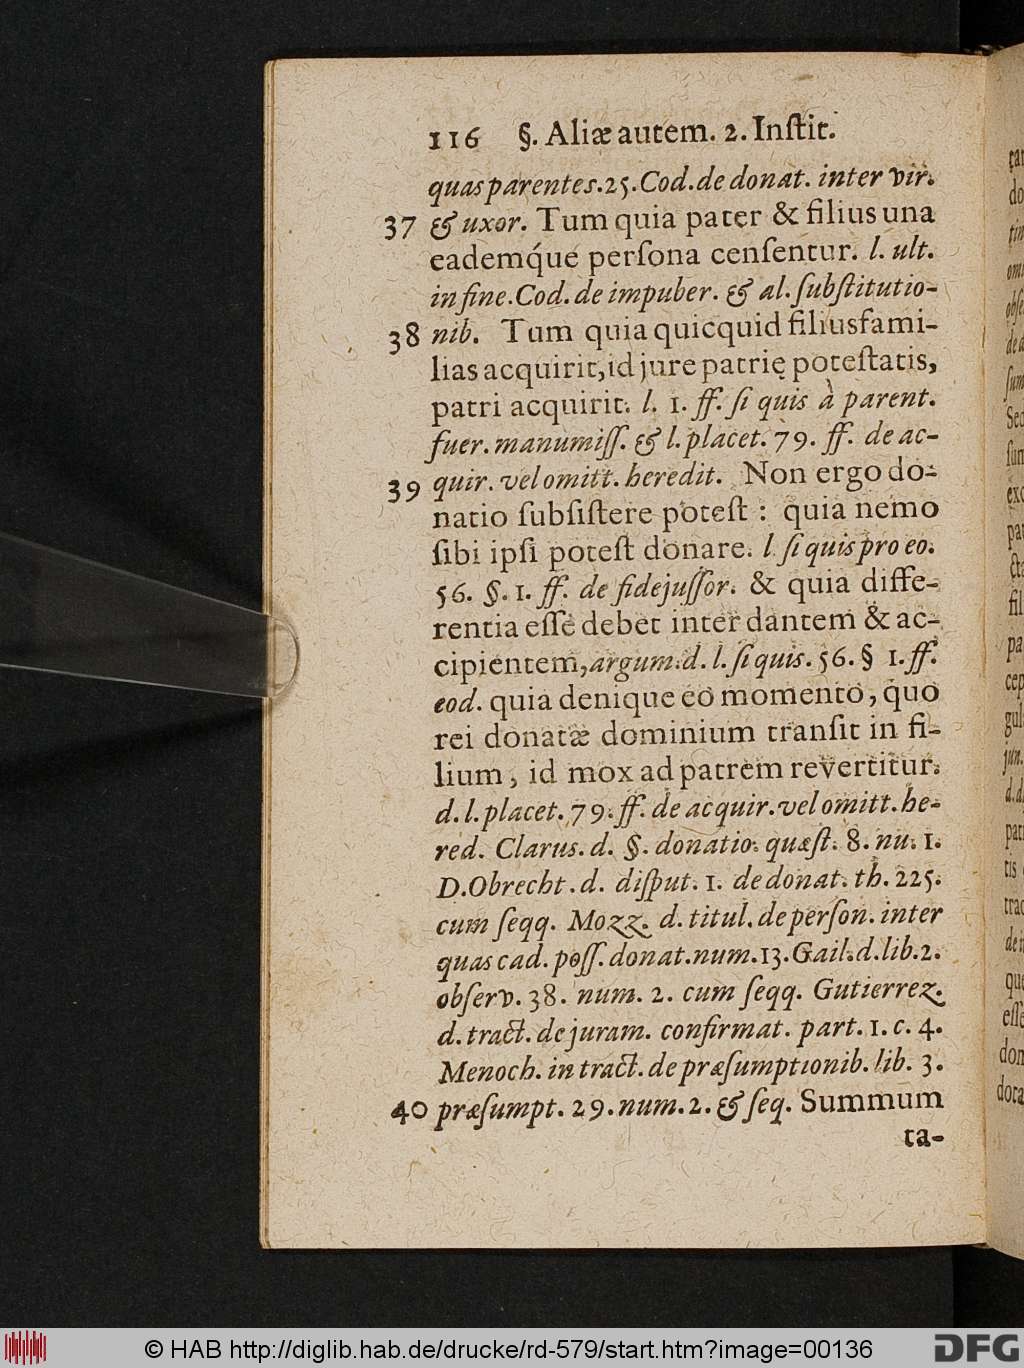 116 §. Aliæ autem. 2. Inſtit.
quas parentes. 25. Cod. de donat. inter vir.
37 & uxor. Tum quia pater & filius una
eademq́ue perſona cenſentur. l. ult.
in fine. Cod. de impuber. & al. ſubſtitutio-
38 nib. Tum quia quicquid filiusfami-
lias acquirit, id jure patrię poteſtatis,
patri acquirit. l. 1. ff. ſi quis à parent.
fuer. manumiſſ. & l. placet. 79. ff. de ac-
39 quir. vel omitt. heredit. Non ergo do-
natio ſubſiſtere poteſt : quia nemo
ſibi ipſi poteſt donare. l ſi quis pro eo.
56. §. 1. ff. de fidejuſſor. & quia diffe-
rentia eſſe debet inter dantem & ac-
cipientem, argum. d. l. ſi quis. 56. § 1. ff.
eod. quia denique eo momento, quo
rei donatæ dominium tranſit in fi-
lium, id mox ad patrem revertitur.
d. l. placet. 79. ff. de acquir. vel omitt. he-
red. Clarus. d. §. donatio. quæſt. 8. nu. 1.
D. Obrecht. d. diſput. 1. de donat. th. 225.
cum ſeqq. Mozz. d. titul. de perſon. inter
quas cad. poſſ. donat. num. 13. Gail. d. lib. 2.
obſerv. 38. num. 2. cum ſeqq. Gutierrez.
d. tract. de juram. confirmat. part. 1. c. 4.
Menoch. in tract. de præſumptionib. lib. 3.
40 præſumpt. 29. num. 2. & ſeq. Summum
ta-
© HAB http://diglib.hab.de/drucke/rd-579/start.htm?image=00136
DFG